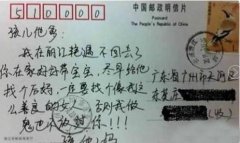 510000
中国邮政明信片
Postcard
The People's Republic of China
孩儿他爹
我在丽江艳遇不回去了
你在家好好带宝宝,尽早给他
找个后妈,一定要找个像我这
么善良的女人,否则我做
鬼也不放过你!!!
孩他妈
广东省广州市天河区
(收)